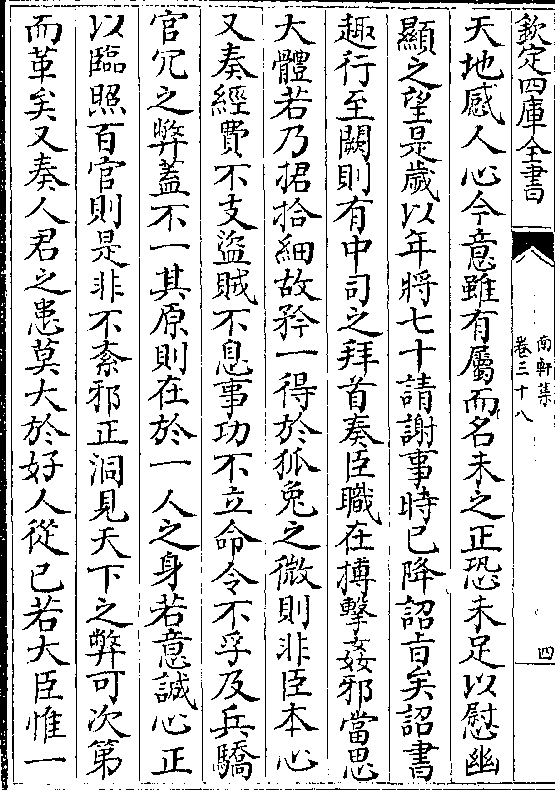 欽定四庫全書
南軒集
卷三十八
四
天地感人心今意雖有屬而名未之正恐未足以慰幽
顯之望是歳以年將七十請謝事時已降詔㫖矣詔書
趣行至闕則有中司之拜首奏臣職在搏擊姦邪當思
大體若乃捃拾細故矜一得於狐兔之微則非臣本心
又奏經費不支盜賊不息事功不立命令不孚及兵驕
官冗之弊蓋不一其原則在於一人之身若意誠心正
以臨照百官則是非不紊邪正洞見天下之弊可次第
而革矣又奏人君之患莫大於好人從已若大臣惟一